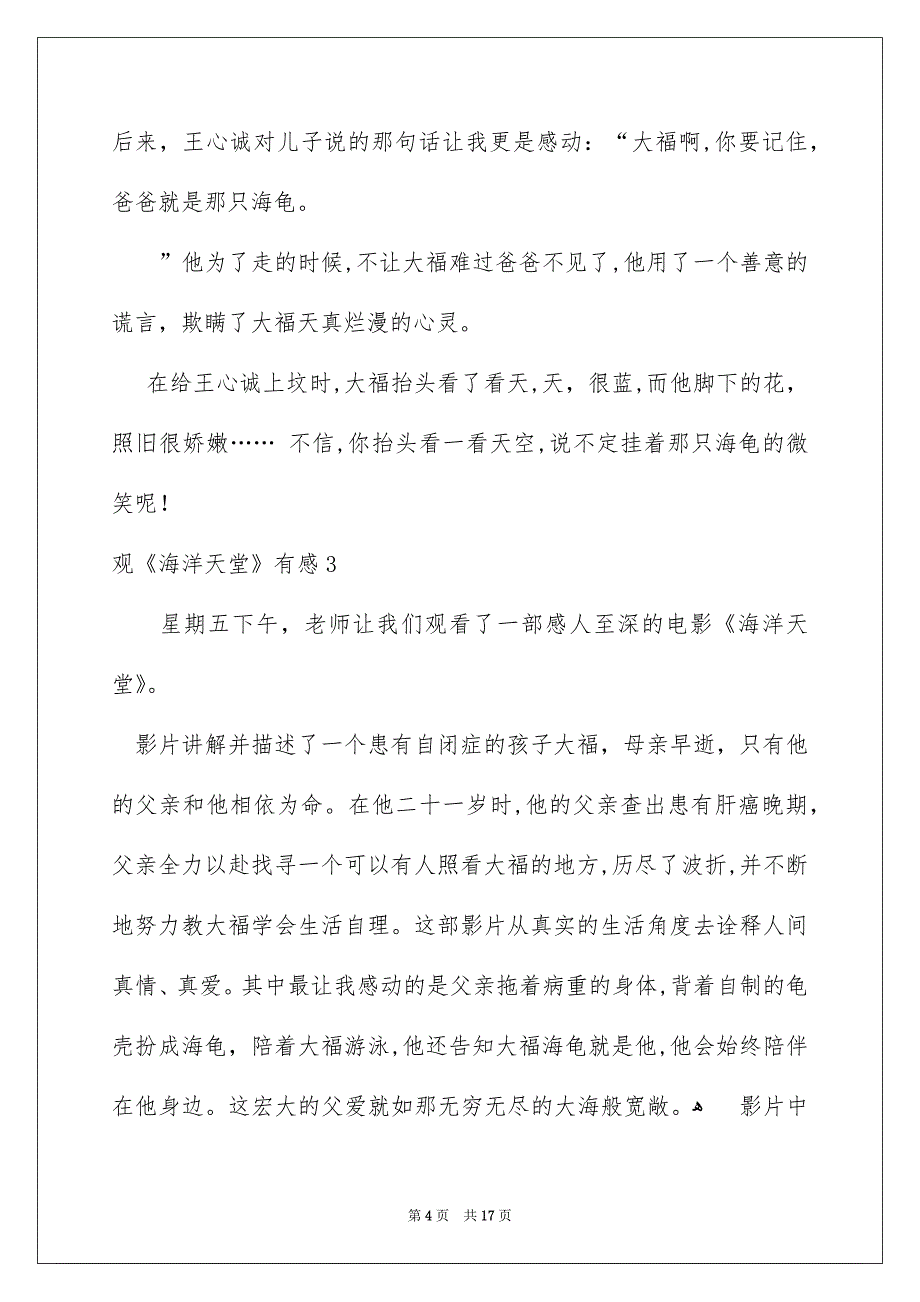 后来，王心诚对儿子说的那句话让我更是感动：“大福啊,你要记住，
爸爸就是那只海龟。
”他为了走的时候,不让大福难过爸爸不见了,他用了一个善意的
谎言，欺瞒了大福天真烂漫的心灵。
在给王心诚上坟时,大福抬头看了看天,天，很蓝,而他脚下的花，
照旧很娇嫩…… 不信,你抬头看一看天空,说不定挂着那只海龟的微
笑呢！
观《海洋天堂》有感3
星期五下午，老师让我们观看了一部感人至深的电影《海洋天
堂》。
影片讲解并描述了一个患有自闭症的孩子大福，母亲早逝，只有他
的父亲和他相依为命。在他二十一岁时,他的父亲查出患有肝癌晚期，
父亲全力以赴找寻一个可以有人照看大福的地方,历尽了波折,并不断
地努力教大福学会生活自理。这部影片从真实的生活角度去诠释人间
真情、真爱。其中最让我感动的是父亲拖着病重的身体,背着自制的龟
壳扮成海龟，陪着大福游泳,他还告知大福海龟就是他,他会始终陪伴
在他身边。这宏大的父爱就如那无穷无尽的大海般宽敞。ﻫ 影片中
第4页 共17页